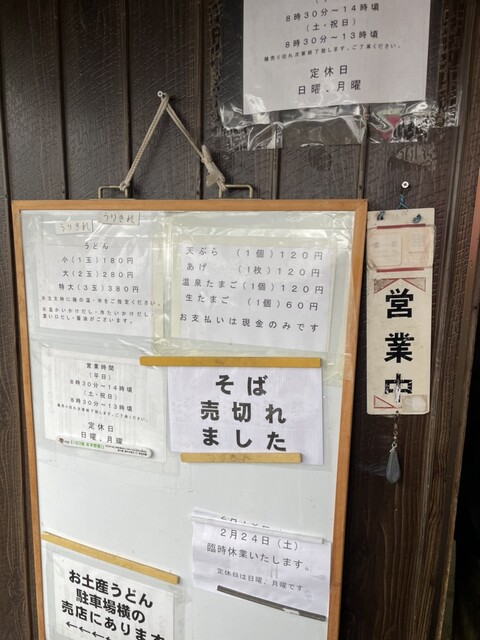 8時30分～14時頃
(土・祝日)
8時30分～13時頃
麺売り切れ次第終了致します。ご了承ください。
定休日
日曜．月曜
うりきれ
うりきれ
うどん
小(1玉)180円
大(2玉)280円
特大(3玉)380円
天ぷら (1個)120円
あげ (1枚)120円
温泉たまご(1個)120円
生たまご (1個)60円
お支払いは現金のみです
営業中
営業時間
(平日)
8時30分～14時頃
(土・祝日)
8時30分～13時頃
麺売り切れ次第終了致します。ご了承ください。
定休日
日曜．月曜
そば
売切れ
ました
2月24日(土)
臨時休業いたします。
定休日は日曜、月曜です
お土産うどん
駐車場横の
売店にあります
←←←